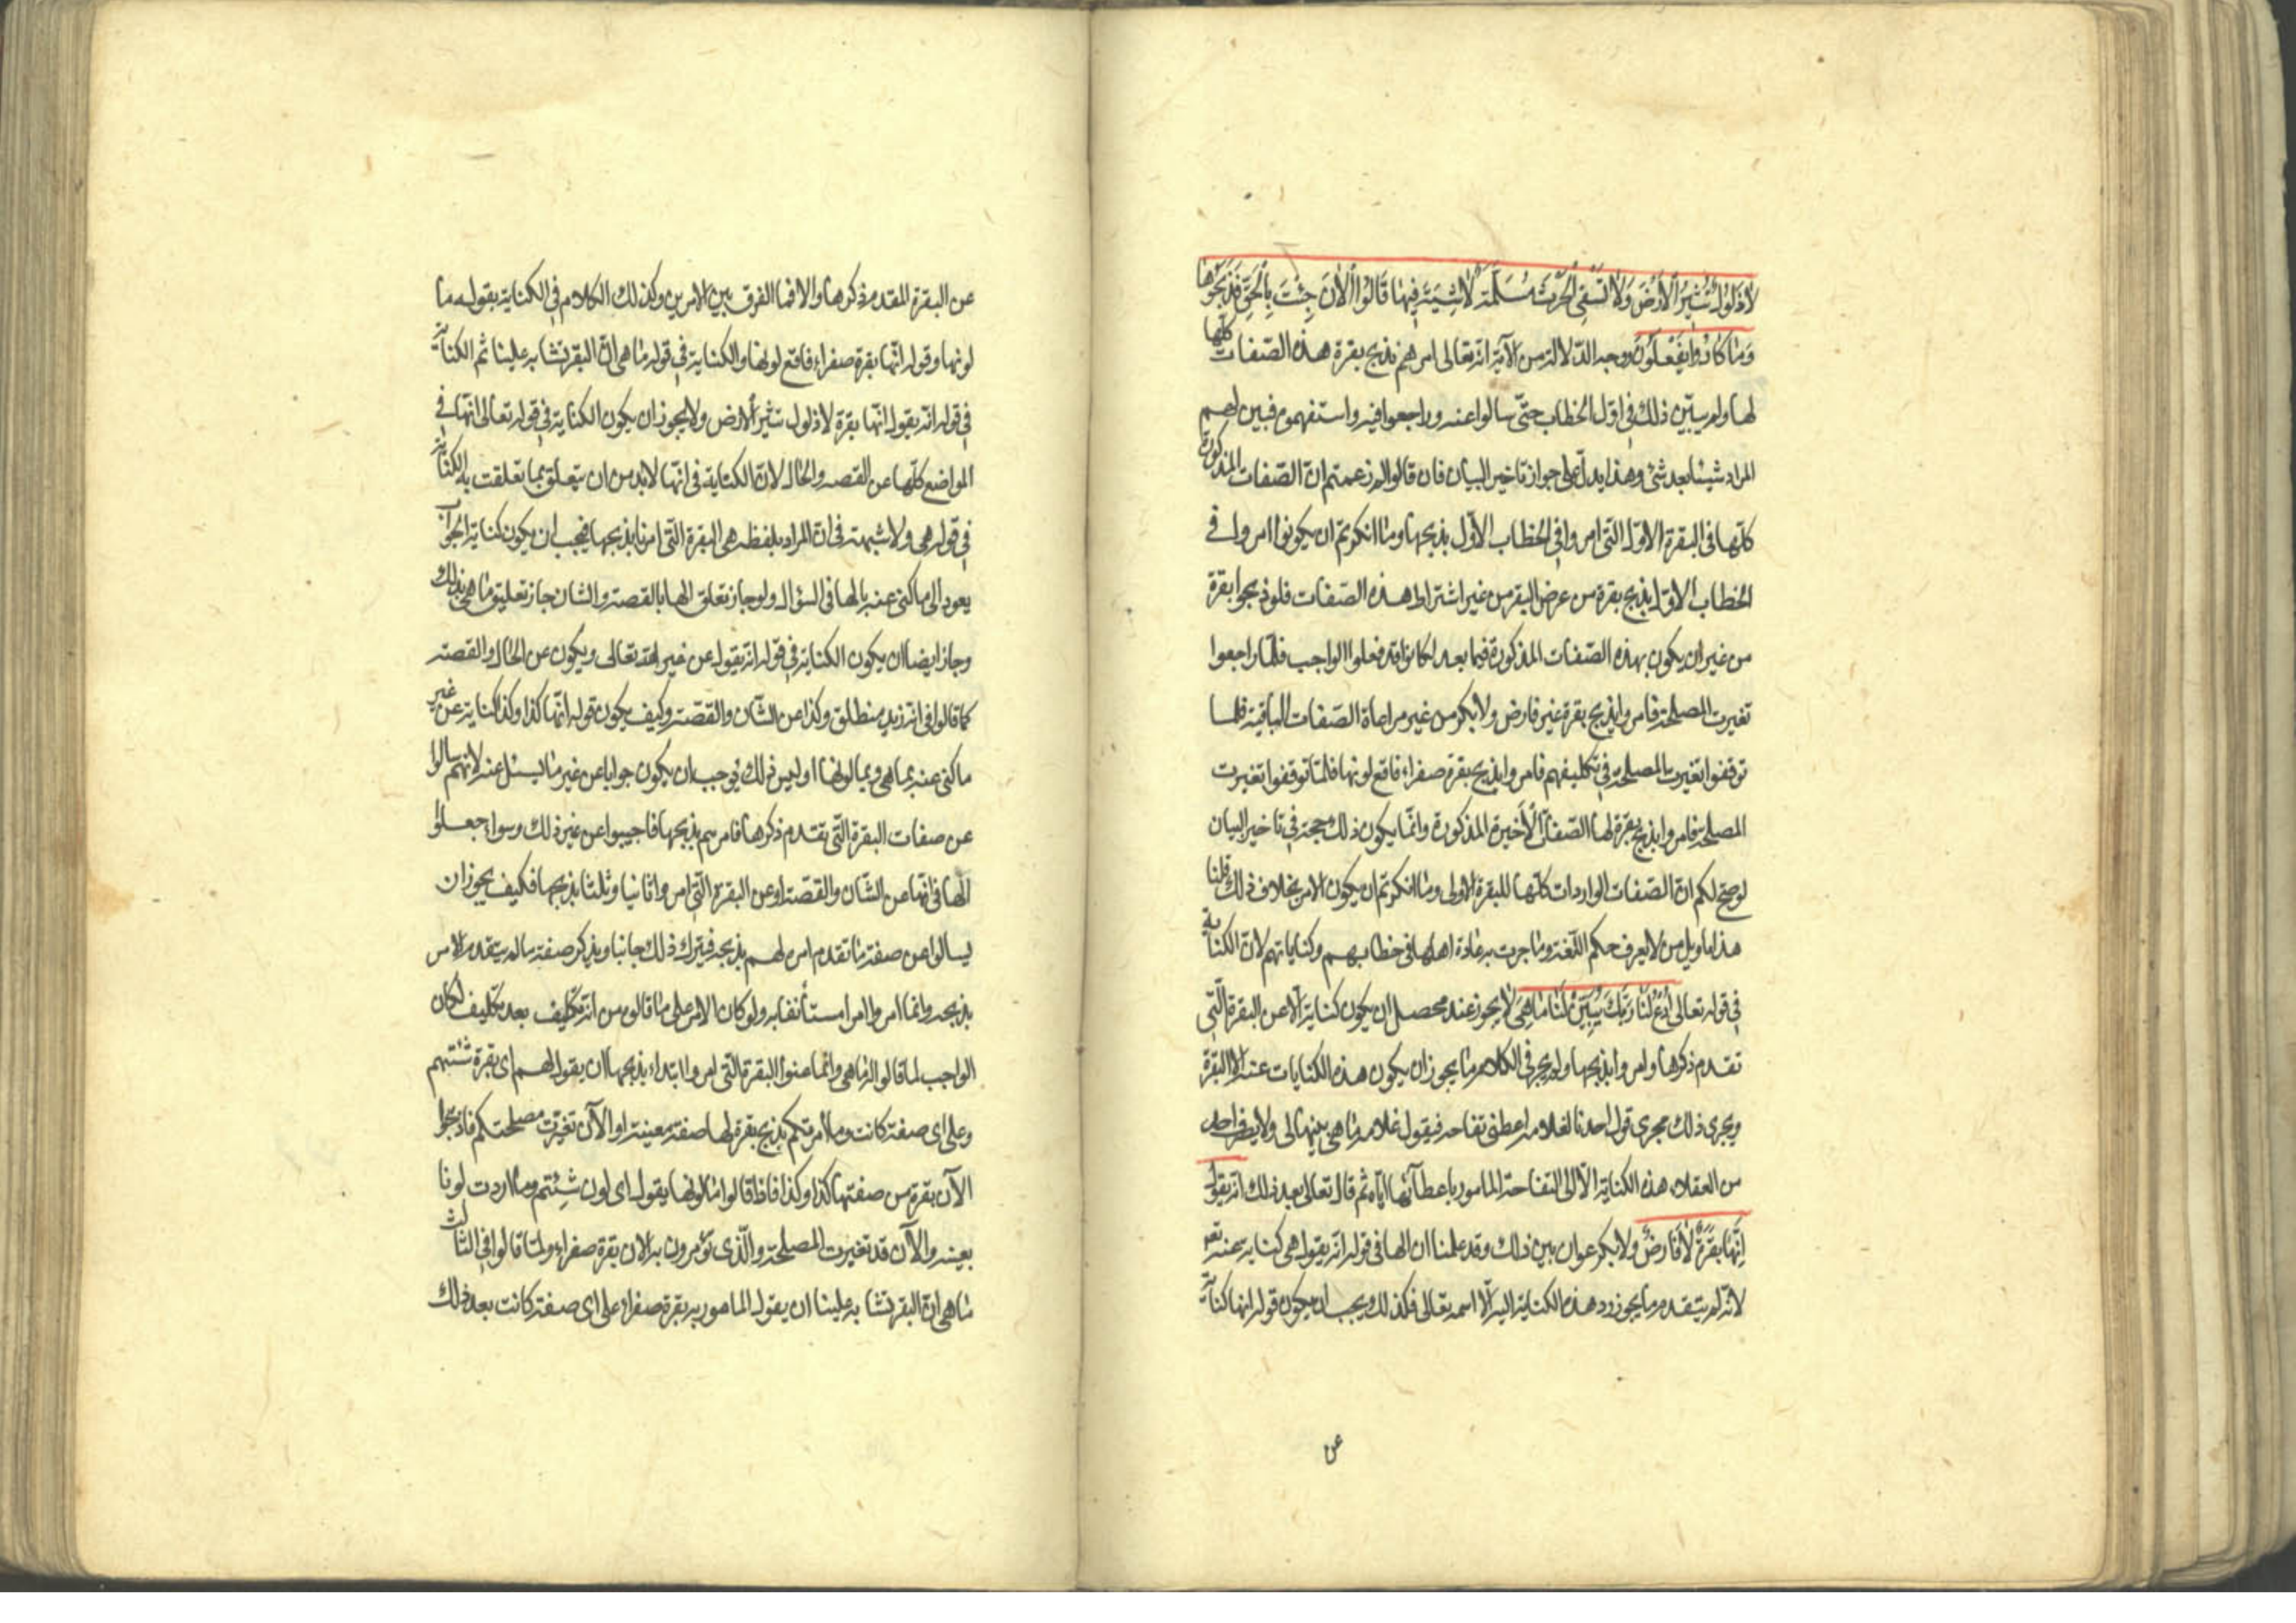 لَا ذَلُولٌ تُثِيرُ الْأَرْضَ وَلَا تَسْقِي الْحَرْثَ مُسَلَّمَةٌ لَا شِيَةَ فِيهَا قَالُوا الْآنَ جِئْتَ بِالْحَقِّ فَذَبَحُوهَا
وَمَا كَادُوا يَفْعَلُونَ ووجه الدّلالة من الآية انّه تعالى امرهم بذبح بقرة هذه الصّفات كلّها
لها ولم يبيّن ذلك فى اوّل الخطاب حتّى سالوا عنه وراجعوا فيه واستفهموه فبين لهم
المراد شيئا بعد شئ وهذا يدلّ على جواز تاخير البيان فان قالوا لم زعمتم انّ الصّفات المذكورة
كلّها فى البقرة الاوّلة التّى امروا فى الخطاب الاوّل بذبحها وما انكرتم ان يكونوا امروا فى
الخطاب الاوّل بذبح بقرة من عرض البقر من غير اشتراط هذه الصّفات فلو ذبحوا بقرة
من غير ان يكون بهذه الصّفات المذكورة فيما بعد لكانوا قد فعلوا الواجب فلمّا راجعوا
تغيرت المصلحة فامروا بذبح بقرة غير فارض ولا بكر من غير مراعاة الصّفات الباقية فلما
توقفوا تغيرت المصلحة فى تكليفهم فامروا بذبح بقرة صفراء فاقع لونها فلمّا توقفوا تغيرت
المصلحة فامروا بذبح بقرة لها الصّفات الأخيرة المذكورة وانّما يكون ذلك حجة فى تاخير البيان
لو صحّ لكم انّ الصّفات الواردات كلّها للبقرة الاولى وما انكرتم ان يكون الامر بخلاف ذلك قلنا
هذا تاويل من لا يعرف حكم اللّغة وما جرت به عادة اهلها فى خطابهم وكناياتهم لانّ الكناية
فى قوله تعالى اُدْعُ لَنَا رَبَّكَ يُبَيِّنْ لَنَا مَا هِيَ لا يجوز عند محصل ان يكون كناية الّا عن البقرة الّتى
تقدم ذكرها وامروا بذبحها ولم يجر فى الكلام ما يجوز ان يكون هذه الكنايات عنه الا البقرة
ويجرى ذلك مجرى قول احدنا لغلامه اعطنى تفاحة فيقول غلامه ما هى بينها لى ولا يصرف احد
من العقلاء هذه الكناية الّا الى التفاحة المامور باعطائها ايّاه ثم قال تعالى بعد ذلك انه يقول
اِنَّهَا بَقَرَةٌ لَا فَارِضٌ ولا بكر عوان بين ذلك وقد علمنا ان الها فى قوله انّه يقول هى كناية عنه تعـ
لانّه لم يتقدم ما يجوز رد هذه الكناية اليه الّا اسمه تعالى فكذلك ويجب ان يكون قوله انها كناية
عن
عن البقرة المقدم ذكرها والا فما الفرق بين الامرين وكذلك الكلام فى الكناية بقوله ما
لونها وقوله انّها بقرة صفراء فاقع لونها والكناية فى قوله ما هى انّ البقر تشابه علينا ثم الكناية
فى قوله انّه يقول انّها بقرة لا ذلول تثير الأرض ولا يجوز ان يكون الكناية فى قوله تعالى انّها فى
المواضع كلّها عن القصه والحال لانّ الكناية فى انّها لا بد من ان يتعلق بما تعلقت به الكناية
فى قوله هى ولا شبهة فى انّ المراد بلفظه هى البقرة التّى امرنا بذبحها فيجب ان يكون كناية الجواب
يعود الى ما كنى عنه بالها فى السؤال ولو جاز تعلق الها بالقصة والشان جاز تعليق ما هى بذلك
وجاز ايضا ان يكون الكناية فى قوله انّه يقول عن غير الله تعالى ويكون عن الحال والقصة
كما قالوا فى انّه زيد منطلق وكذا عن الشّان والقصّة وكيف يكون قوله انّها كذا وكذا كناية عن غير
ما كنى عنه بما هى وبما لونها اوليس ذلك يوجب ان يكون جوابا عن غير ما يسئل عنه لانّهم سالوا
عن صفات البقرة التّى تقدم ذكرها فامرهم بذبحها فاجيبوا عن غير ذلك وسواء جعلوا
الها فى انّها عن الشّان والقصّة او عن البقرة التّى امروا ثانيا وثلثا بذبحها فكيف يجوز ان
يسالوا عن صفة ما تقدم امره لهم بذبحه فيترك ذلك جانبا ويذكر صفة ما لم يتقدم الامر
بذبحه وانما امروا امرا مستأنفا به ولو كان الامر على ما قالوه من انّه تكليف بعد تكليف لكان
الواجب لما قالوا له ما هى وانّما عنوا البقرة التّى امروا ابتداء بذبحها ان يقول لهم اى بقرة شئتم
وعلى اى صفة كانت وما امرتكم بذبح بقرة لها صفة معينة او الآن تغيّرت مصلحتكم فاذبحوا
الآن بقرة من صفتها كذا وكذا فاذا قالوا ما لونها يقول اى لون شِئتم وما اردت لونا
بعينه والآن قد تغيرت المصلحة والّذى تؤمرون به الان بقرة صفراء ولمّا قالوا فى الثالث
ما هى ان البقر تشابه علينا ان يقول المامور به بقرة صفراء على اى صفة كانت بعد ذلك